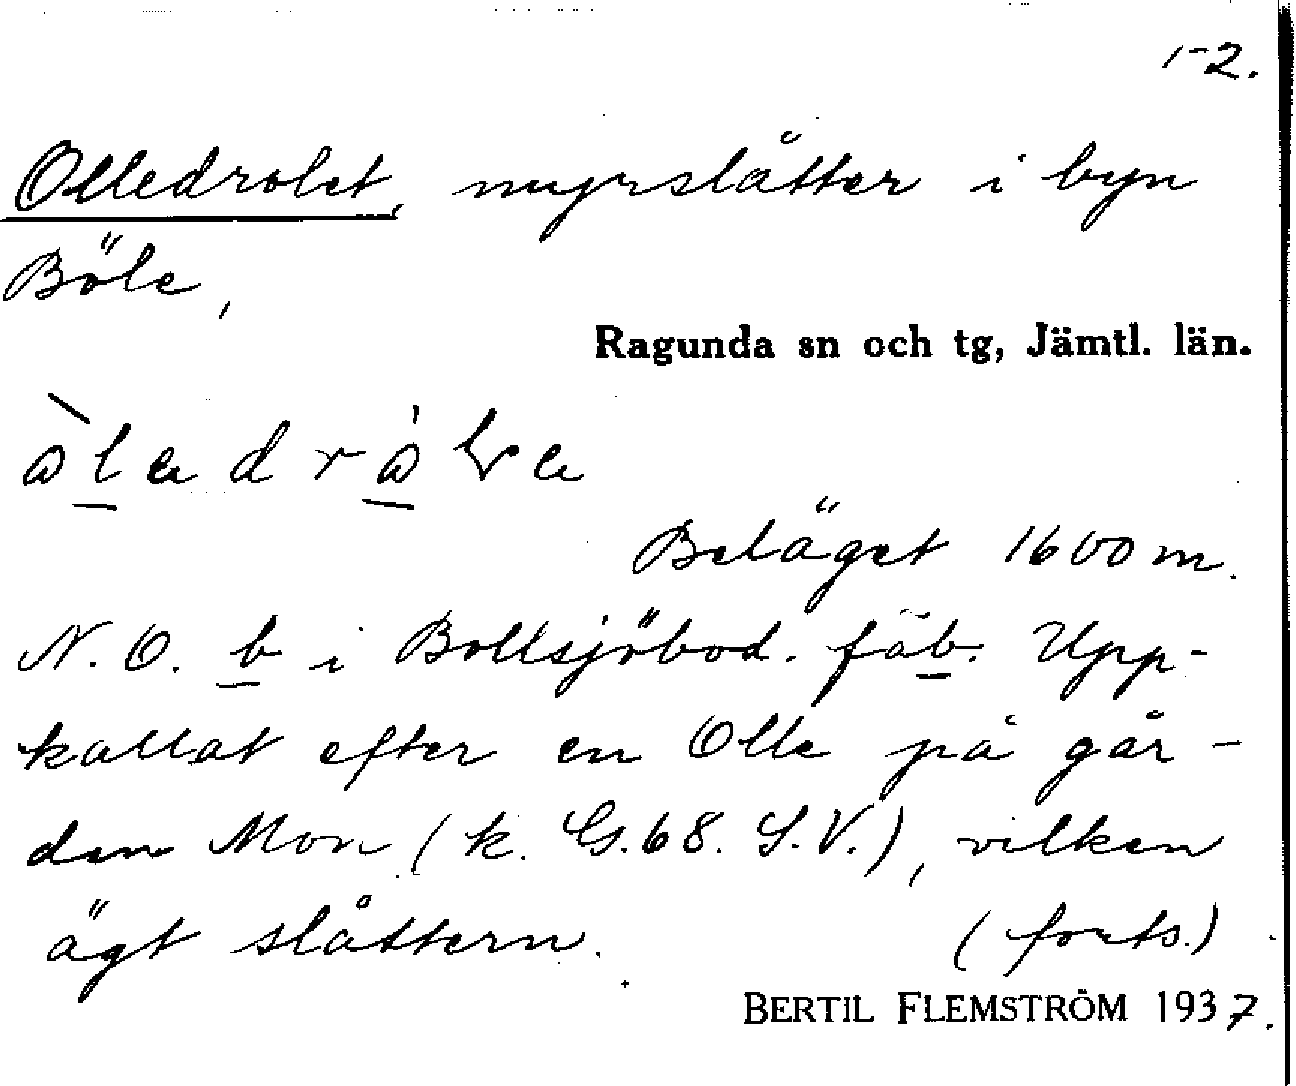 1-2.
Olledrolet, myrslåtter i byn
Böle,
Ragunda sn och tg, Jämtl. län.
Beläget 1600 m.
N.O. b i Bollsjöbod. fäb. Upp-
kallat efter en Olle på går-
den Mon (k. G.68. S.V.), vilken
ägt slåttern. (forts.)
BERTIL FLEMSTRÖM 1937.